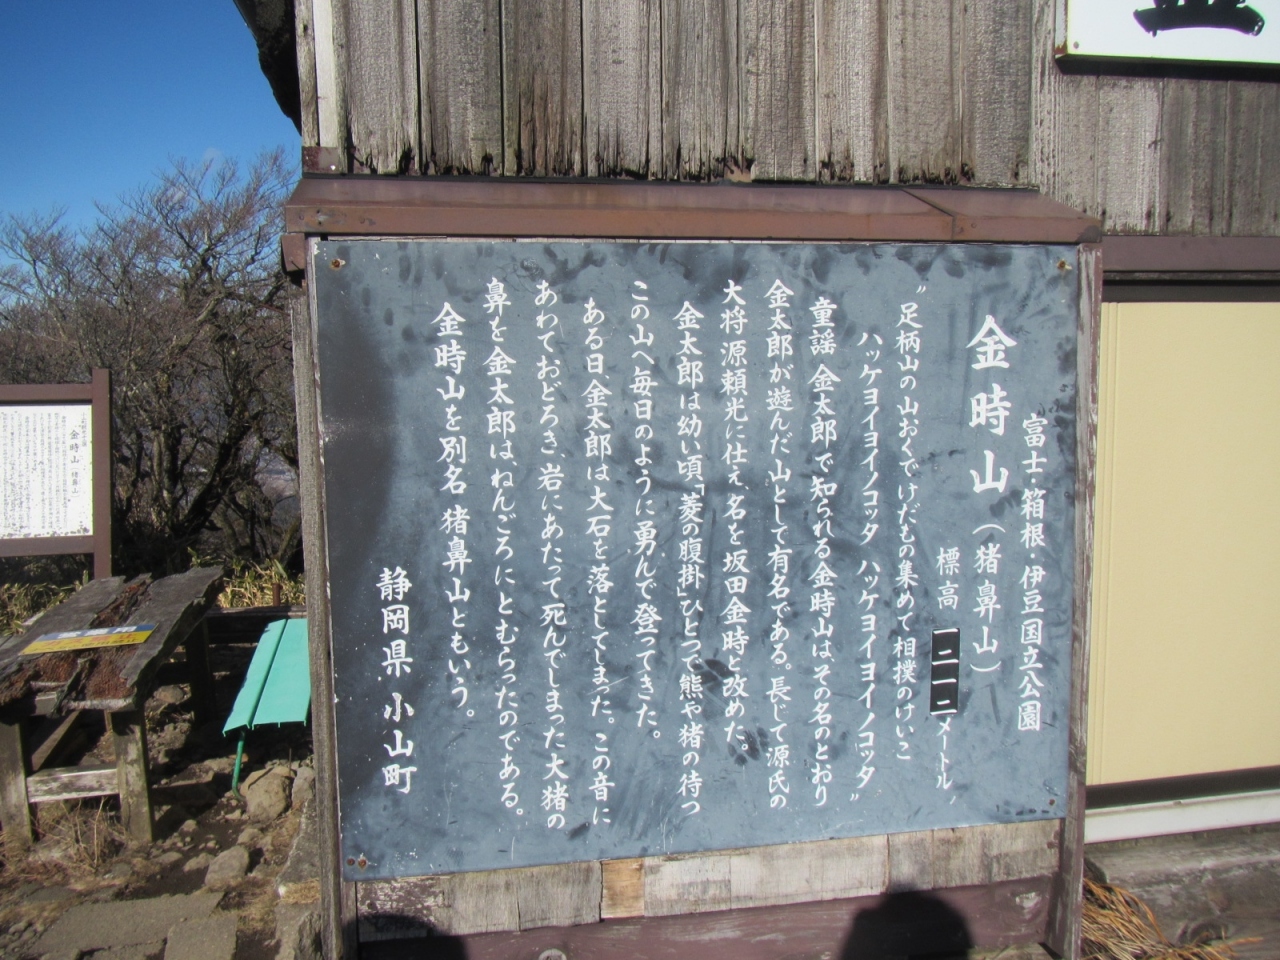 富士・箱根・伊豆国立公園
金時山（猪鼻山）
標高 一二一二メートル
〝足柄山の山おくでけだもの集めて相撲のけいこ
ハッケヨイヨイノコッタ ハッケヨイヨイノコッタ〟
童謡 金太郎で知られる金時山は、その名のとおり
金太郎が遊んだ山として有名である。長じて源氏の
大将源頼光に仕え、名を坂田金時と改めた。
金太郎は幼い頃「菱の腹掛」ひとつで熊や猪の待つ
この山へ毎日のように勇んで登ってきた。
ある日金太郎は大石を落としてしまった。この音に
あわておどろき、岩にあたって死んでしまった大猪の
鼻を金太郎は、ねんごろにとむらったのである。
金時山を別名猪鼻山ともいう。
静岡県 小山町
金時山